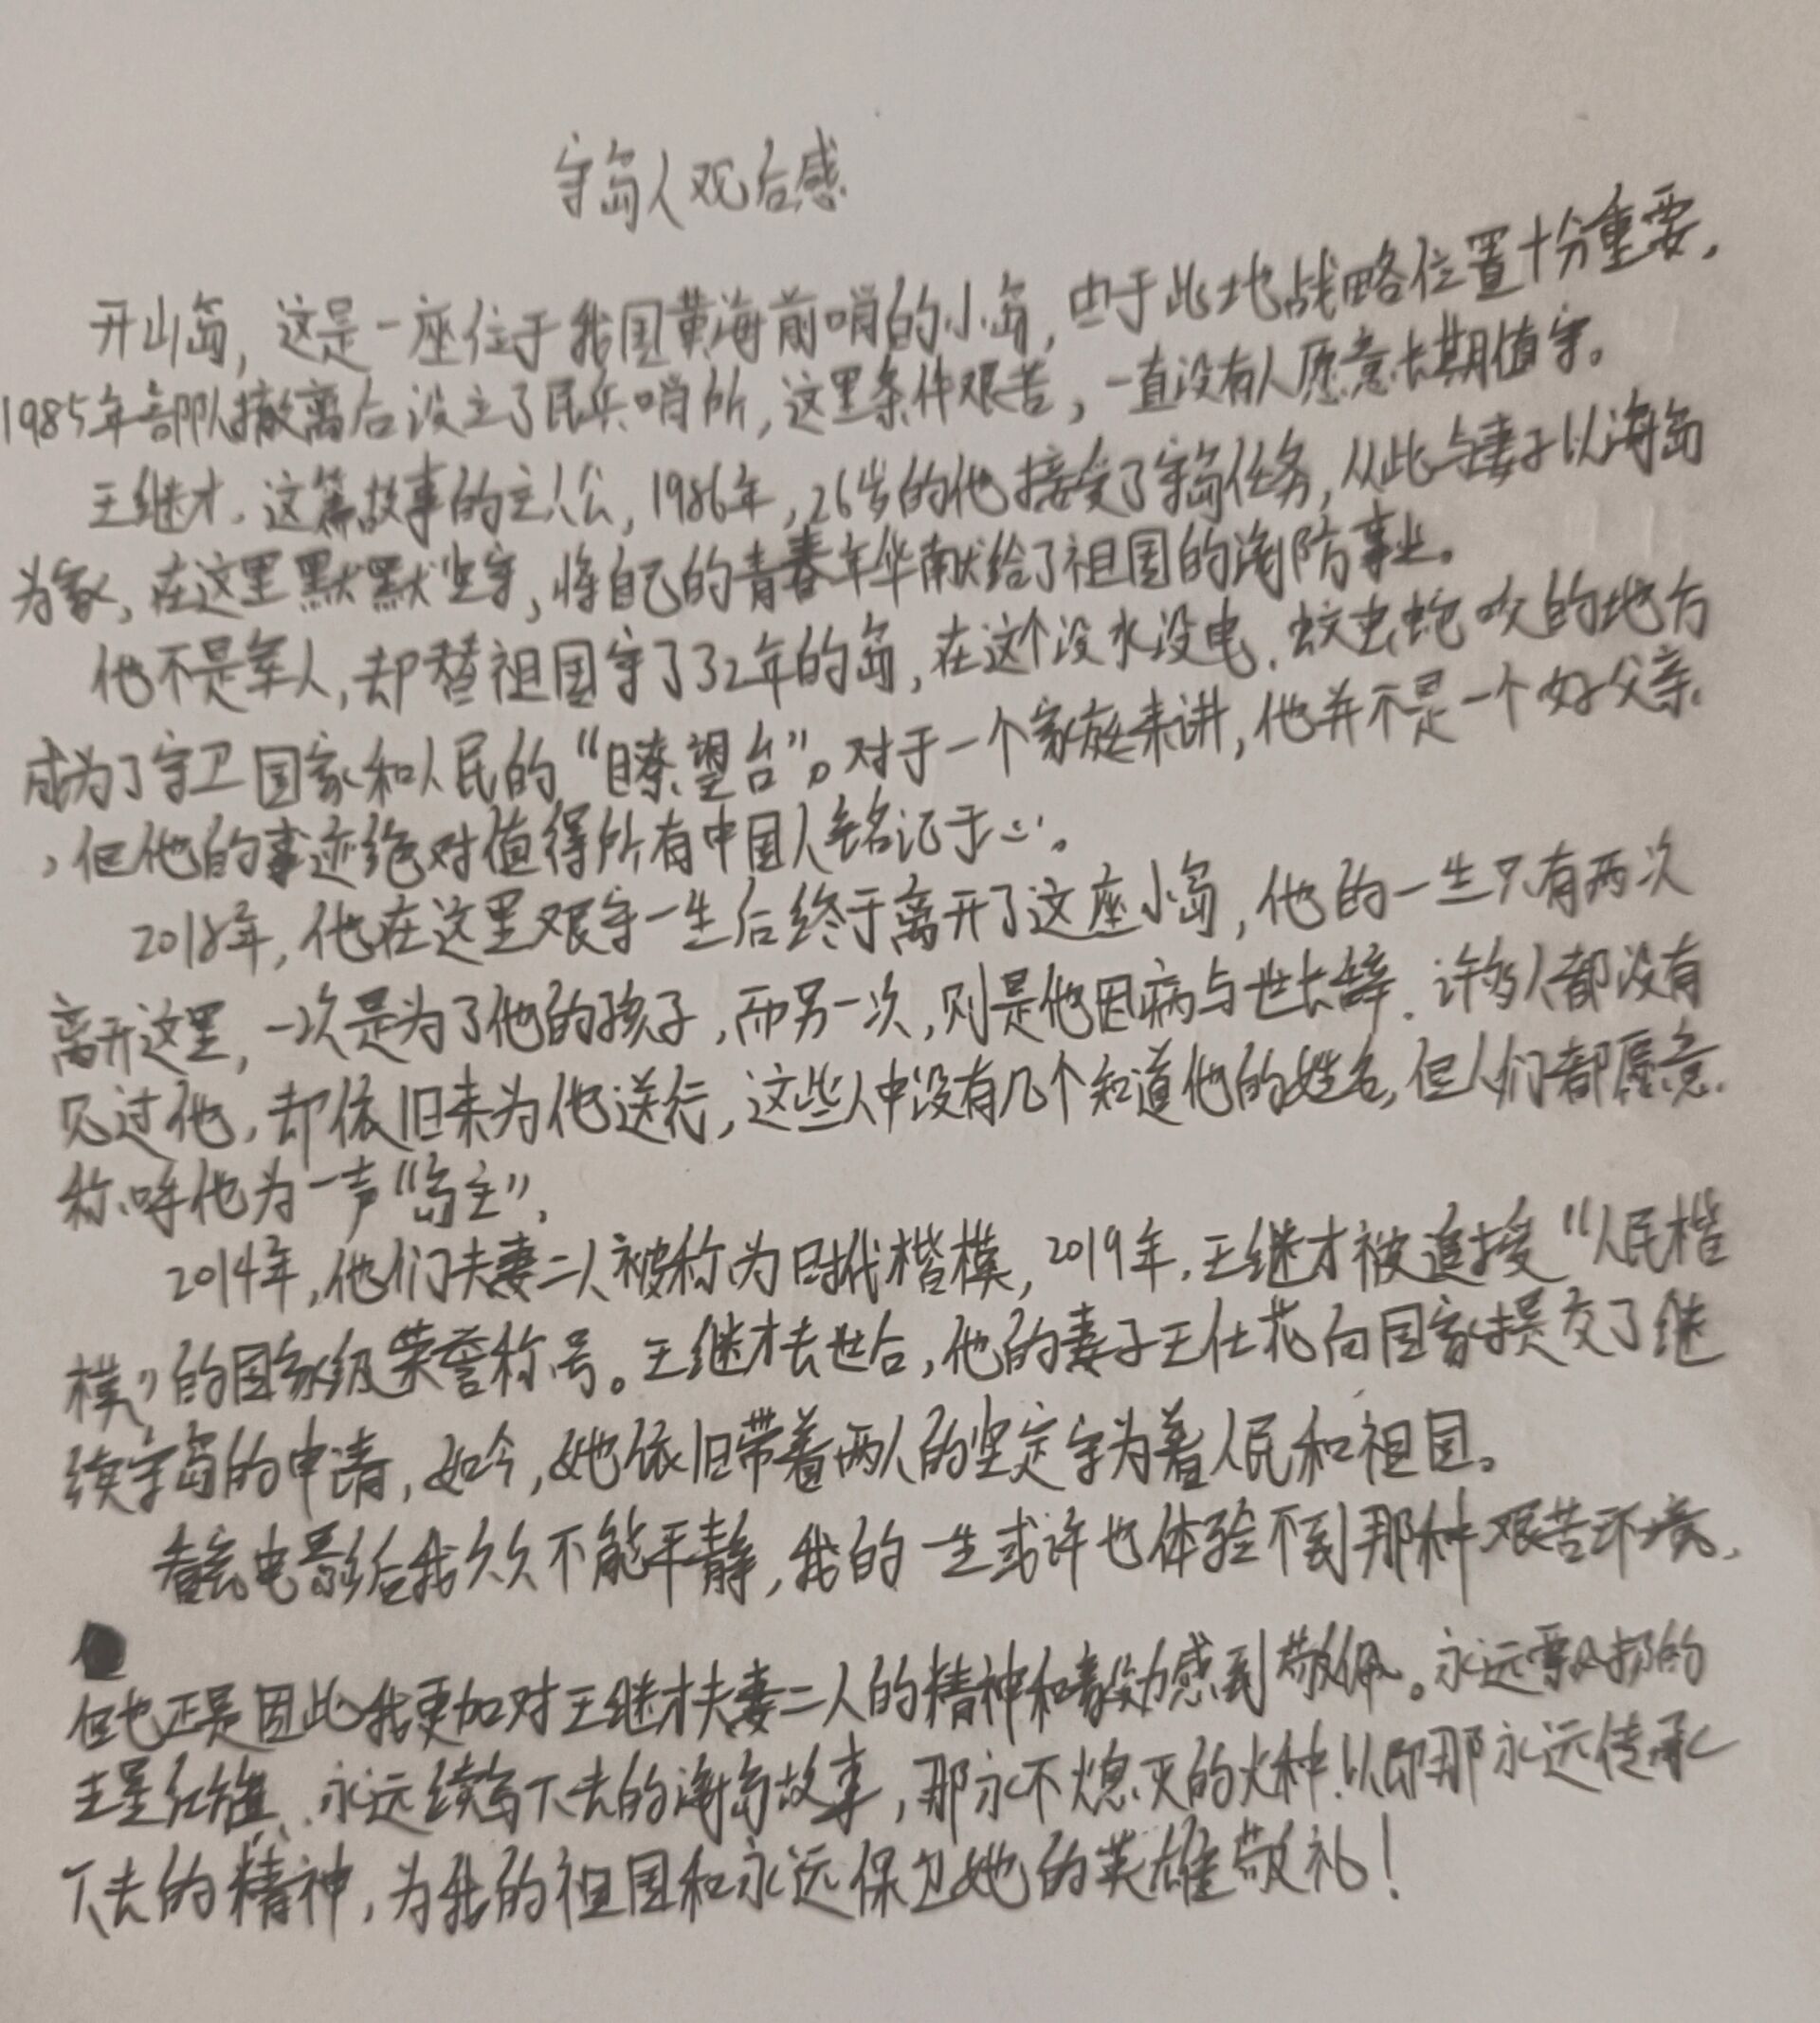 守岛人观后感
开山岛，这是一座位于我国黄海前哨的小岛，由于此地战略位置十分重要，
1985年部队撤离后设立了民兵哨所，这里条件艰苦，一直没有人愿意长期值守。
王继才，这篇故事的主人公，1986年，26岁的他接受了守岛任务，从此与妻子以海岛
为家，在这里默默坚守，将自己的青春年华献给了祖国的海防事业。
他不是军人，却替祖国守了32年的岛，在这个没水没电，蚊虫蛇咬的地方
成为了守卫国家和人民的“瞭望台”。对于一个家庭来讲，他并不是一个好父亲
，但他的事迹绝对值得所有中国人铭记于心。
2018年，他在这里艰守一生后终于离开了这座小岛，他的一生只有两次
离开这里，一次是为了他的孩子，而另一次，则是他因病与世长辞．许多人都没有
见过他，却依旧来为他送行，这些人中没有几个知道他的姓名，但人们都愿意
称呼他为一声“岛主”，
2014年，他们夫妻二人被称为时代楷模，2019年，王继才被追授“人民楷
模”的国家级荣誉称号。王继才去世后，他的妻子王仕花向国家提交了继
续守岛的申请，如今，她依旧带着两人的坚定守为着人民和祖国。
看完电影后我久久不能平静，我的一生或许也体验不到那种艰苦环境，
但也正是因此我更加对王继才夫妻二人的精神和毅力感到敬佩。永远飘扬的
五星红旗、永远续写下去的海岛故事，那永不熄灭的火种．以即那永远传承
下去的精神，为我的祖国和永远保卫她的英雄敬礼！